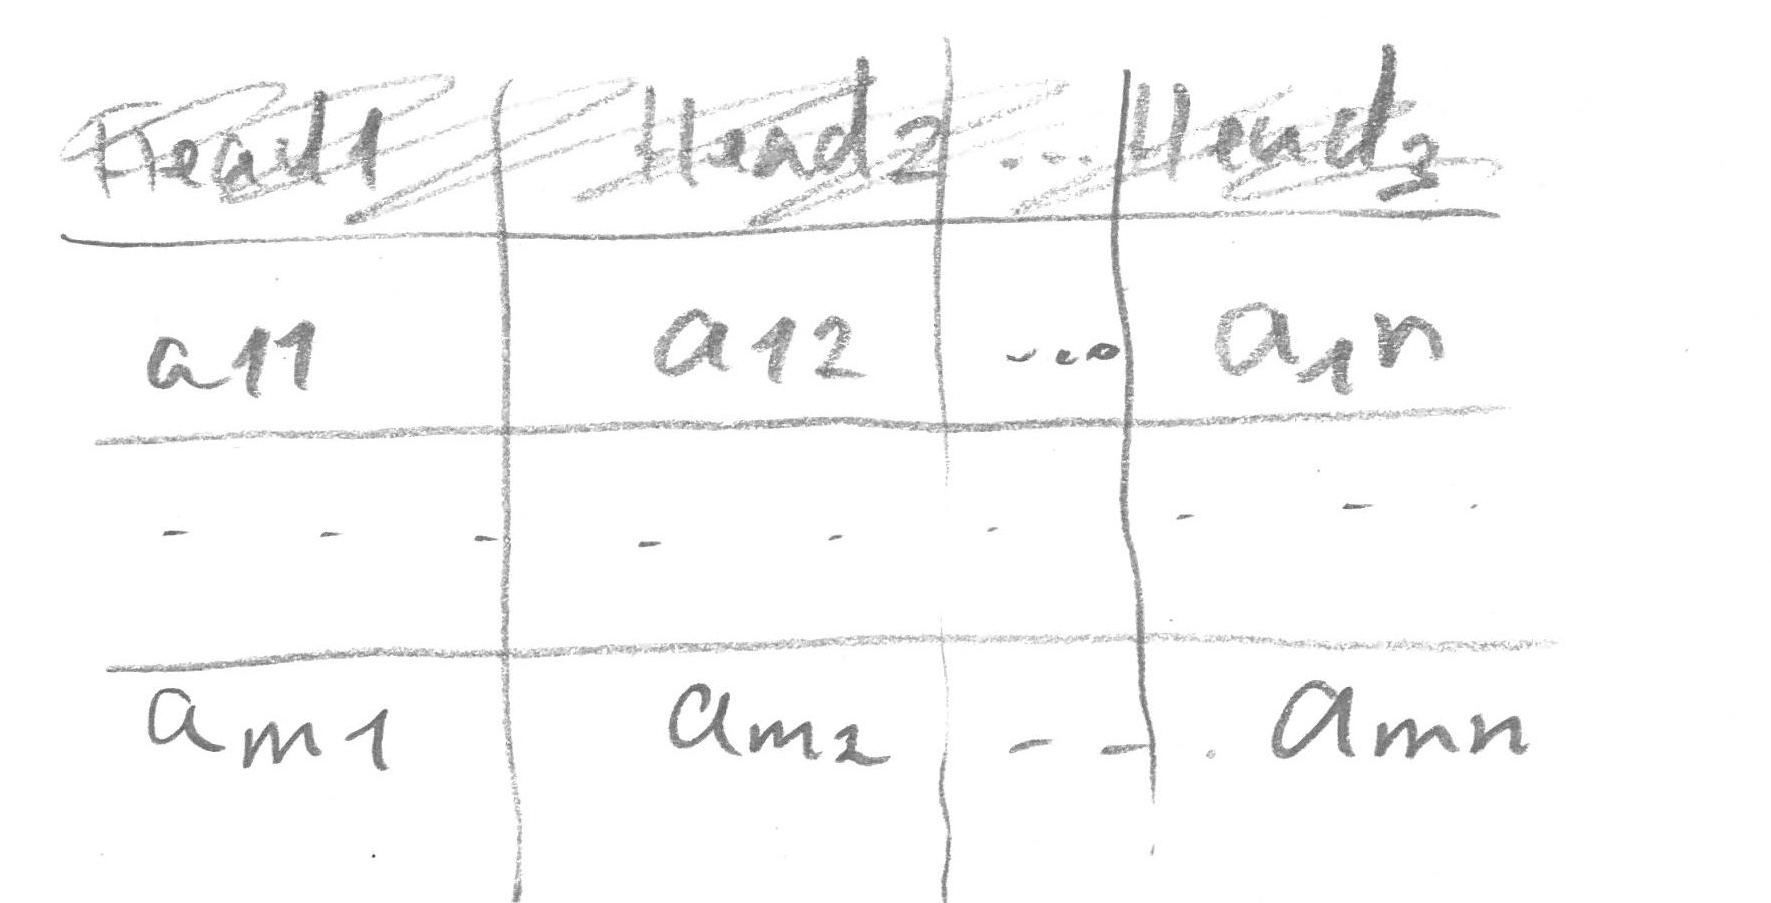 Head1 Head2 ... Head3
a11 a12 ... a1n
- - - - - - - - -
am1 am2 - - . amn